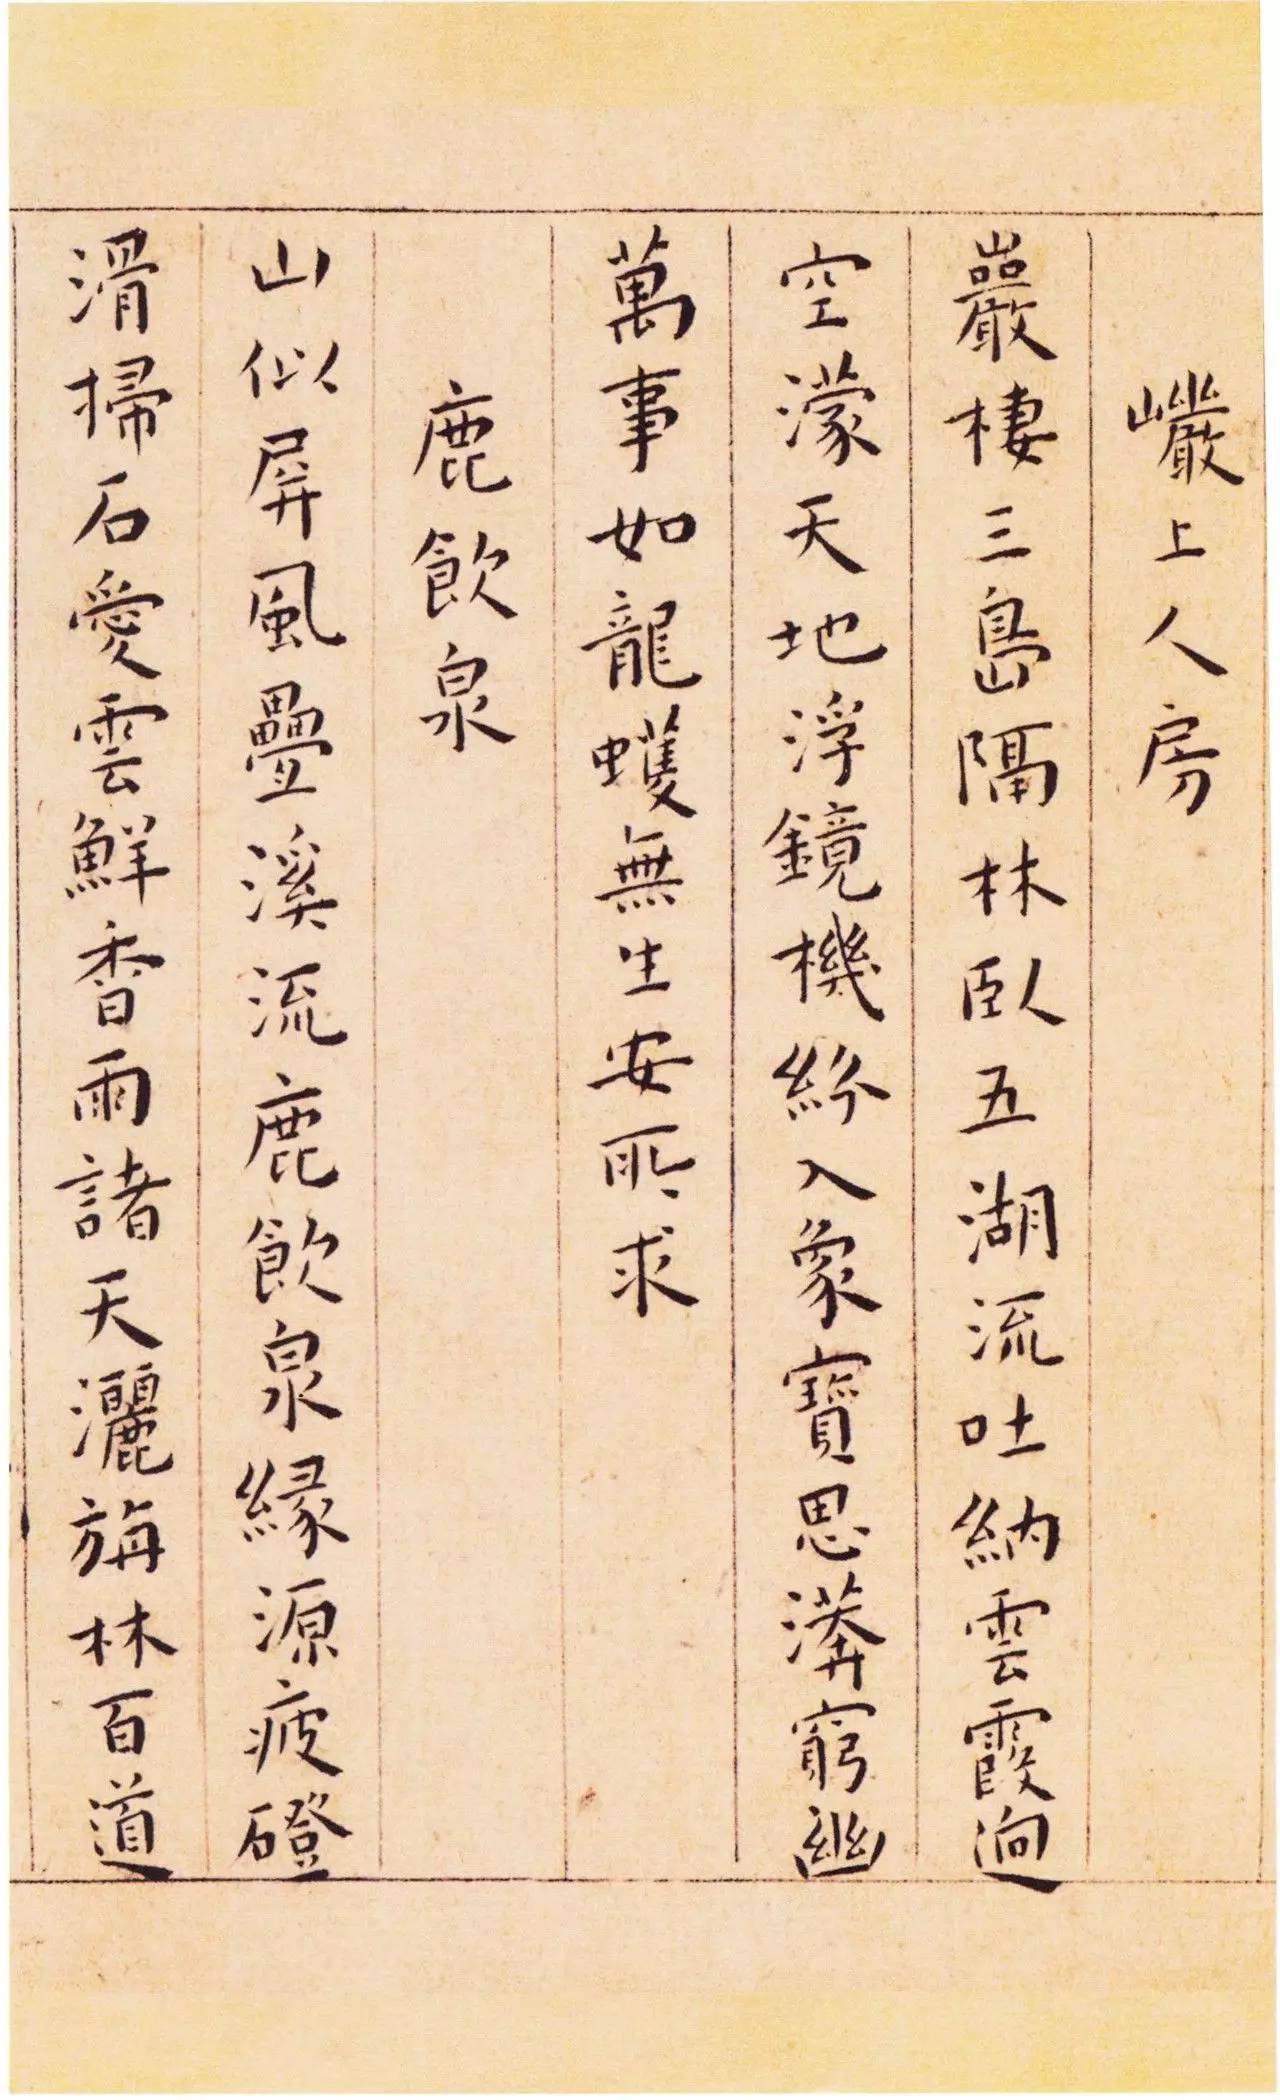 巘上人房
巖棲三島隔林臥五湖流吐納雲霞逈
空濛天地浮鏡機紛入象寶思漭窮幽
萬事如龍蠖無生安所求
鹿飲泉
山似屏風疊溪流鹿飲泉緣源疲磴
滑掃石愛雲鮮香雨諸天灑旃林百道